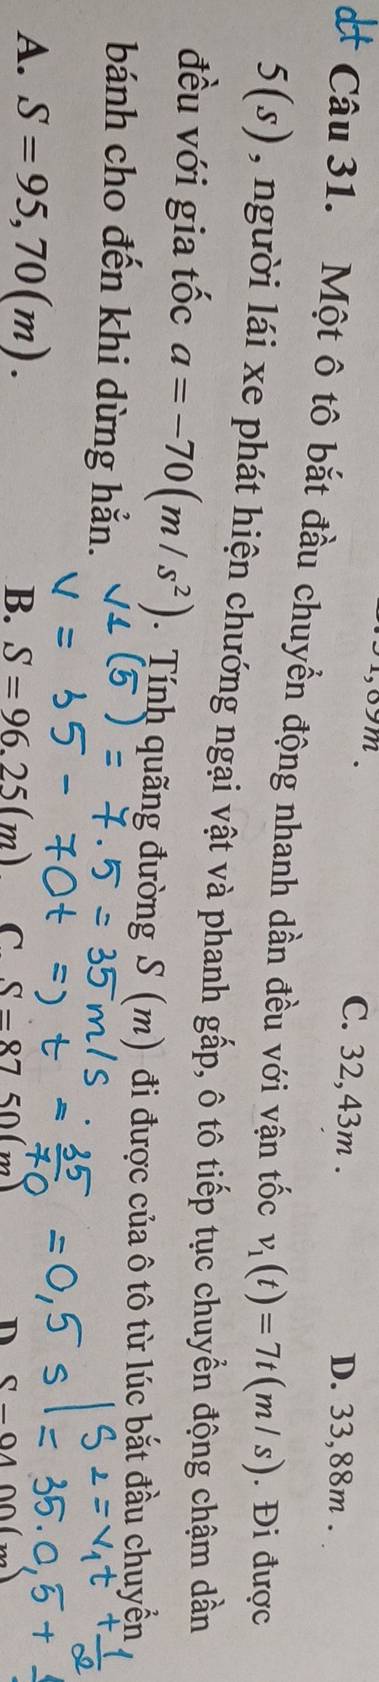 C. 32,43m. D. 33,88m.
dt Câu 31. Một ô tô bắt đầu chuyển động nhanh dần đều với vận tốc v₁(t) = 7t(m/s). Đi được
5(s), người lái xe phát hiện chướng ngại vật và phanh gấp, ô tô tiếp tục chuyển động chậm dần
đều với gia tốc a = −70(m/s²). Tính quãng đường S(m) đi được của ô tô từ lúc bắt đầu chuyển
bánh cho đến khi dừng hẳn.
v1(5) = 7.5 = 35 m/s.
v = 35 - 70t => t = 35/70 = 0,5 s
S2 = v₁t + 1/2
= 35.0,5 +
A. S = 95,70(m). B. S = 96.25(m). C. S = 87.50(m) D. S = 94.00(m)